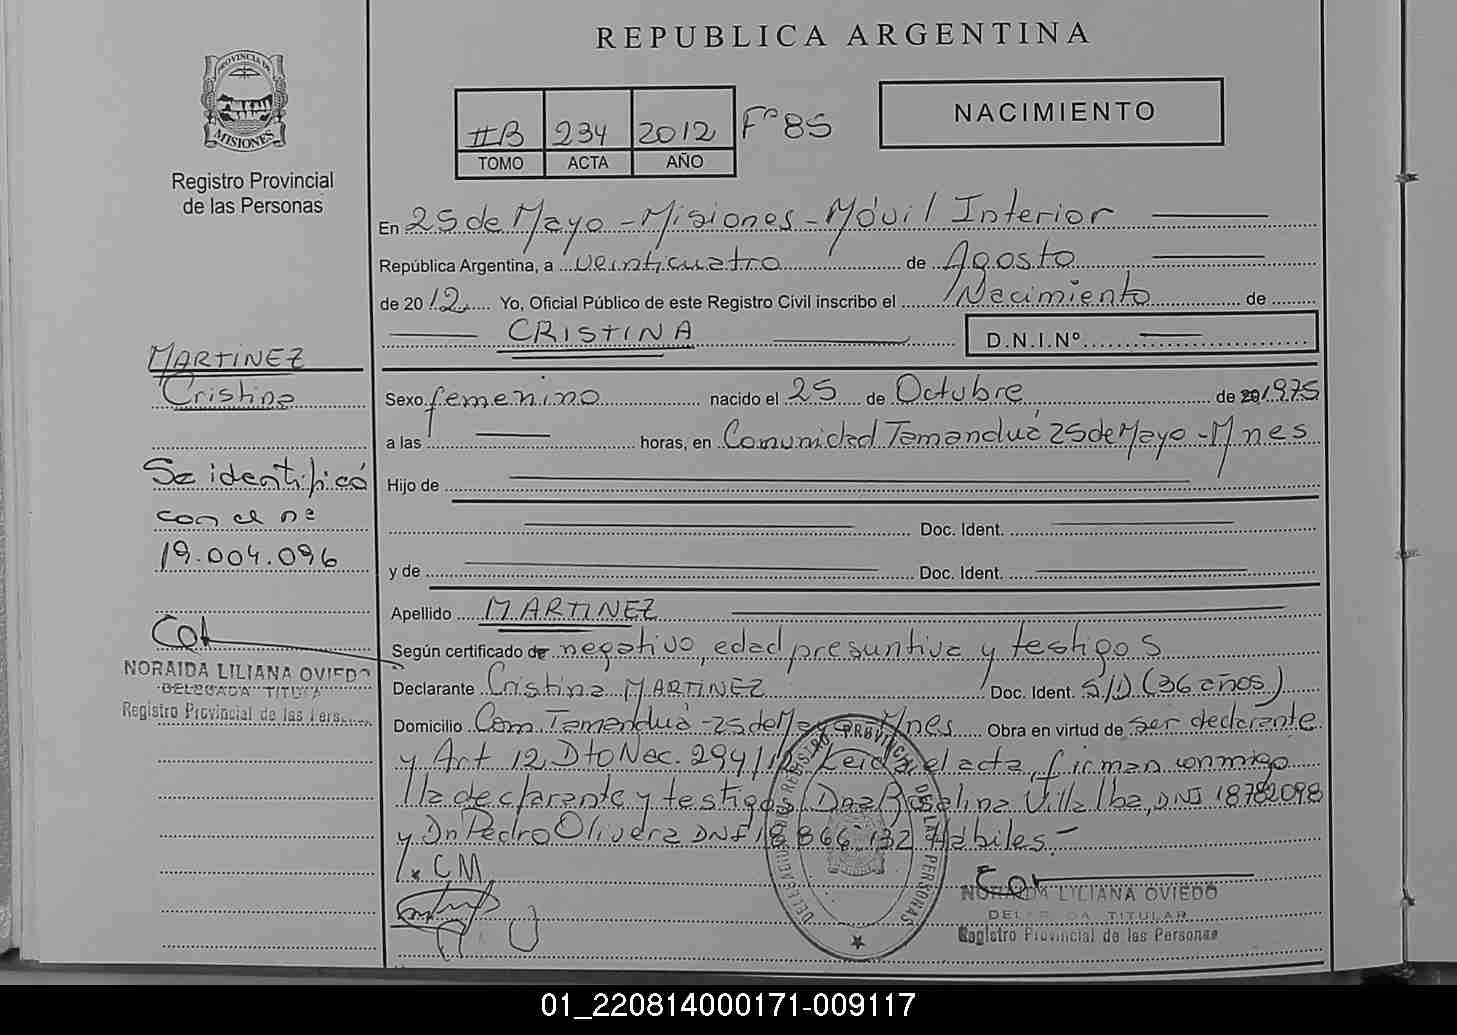 REPUBLICA ARGENTINA
PROVINCIA DE
MISIONES
Registro Provincial
de las Personas
IIB 234 2012 Fº 85
TOMO ACTA AÑO
NACIMIENTO
En 25 de Mayo - Misiones - Móvil Interior
República Argentina, a veinticuatro de Agosto
de 2012 Yo, Oficial Público de este Registro Civil inscribo el Nacimiento de
CRISTINA D.N.I.Nº
MARTINEZ
Cristina
Se identificó
con el nº
19.004.096
NORAIDA LILIANA OVIEDO
DELEGADA TITULAR
Registro Provincial de las Personas
Sexo femenino nacido el 25 de Octubre de 1975
a las horas, en Comunidad Tamanduá 25 de Mayo - Mnes
Hijo de
Doc. Ident.
y de Doc. Ident.
Apellido MARTINEZ
Según certificado de negativo, edad presuntiva y testigos
Declarante Cristina MARTINEZ Doc. Ident. S/D (36 años)
Domicilio Com. Tamanduá - 25 de Mayo Mnes Obra en virtud de ser declarante
y Art 12 Dto Nec. 294/12 Leida el acta, firman conmigo
la declarante y testigos Dna Roselina Villalba, DNI 18782098
y Dn Pedro Olivera DNI 18.866.132 Hábiles.-
C M
DELEGACION REGISTRO PROVINCIAL DE LAS PERSONAS
NORAIDA LILIANA OVIEDO
DELEGADA TITULAR
Registro Provincial de las Personas
01_220814000171-009117